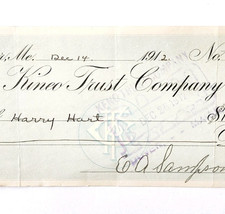 Me. Dec 14 1912 No.
Kineo Trust Company
Harry Hart $
E A Sampson